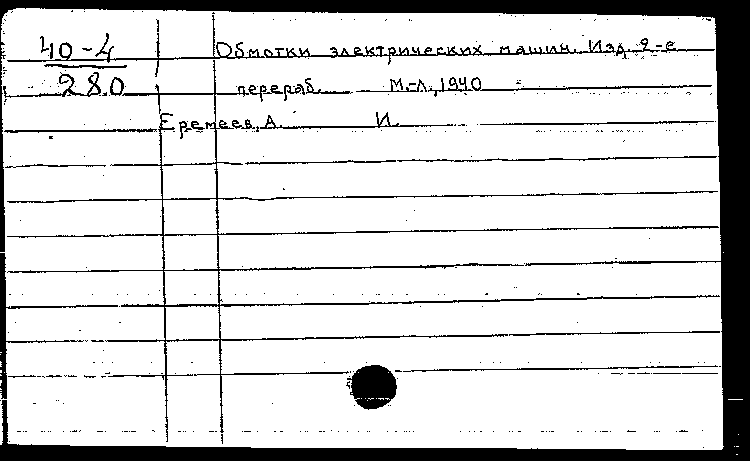 40-4 Обмотки электрических машин. Изд. 2-е
280 перераб. М.-Л., 1940
Еремеев, А. И.